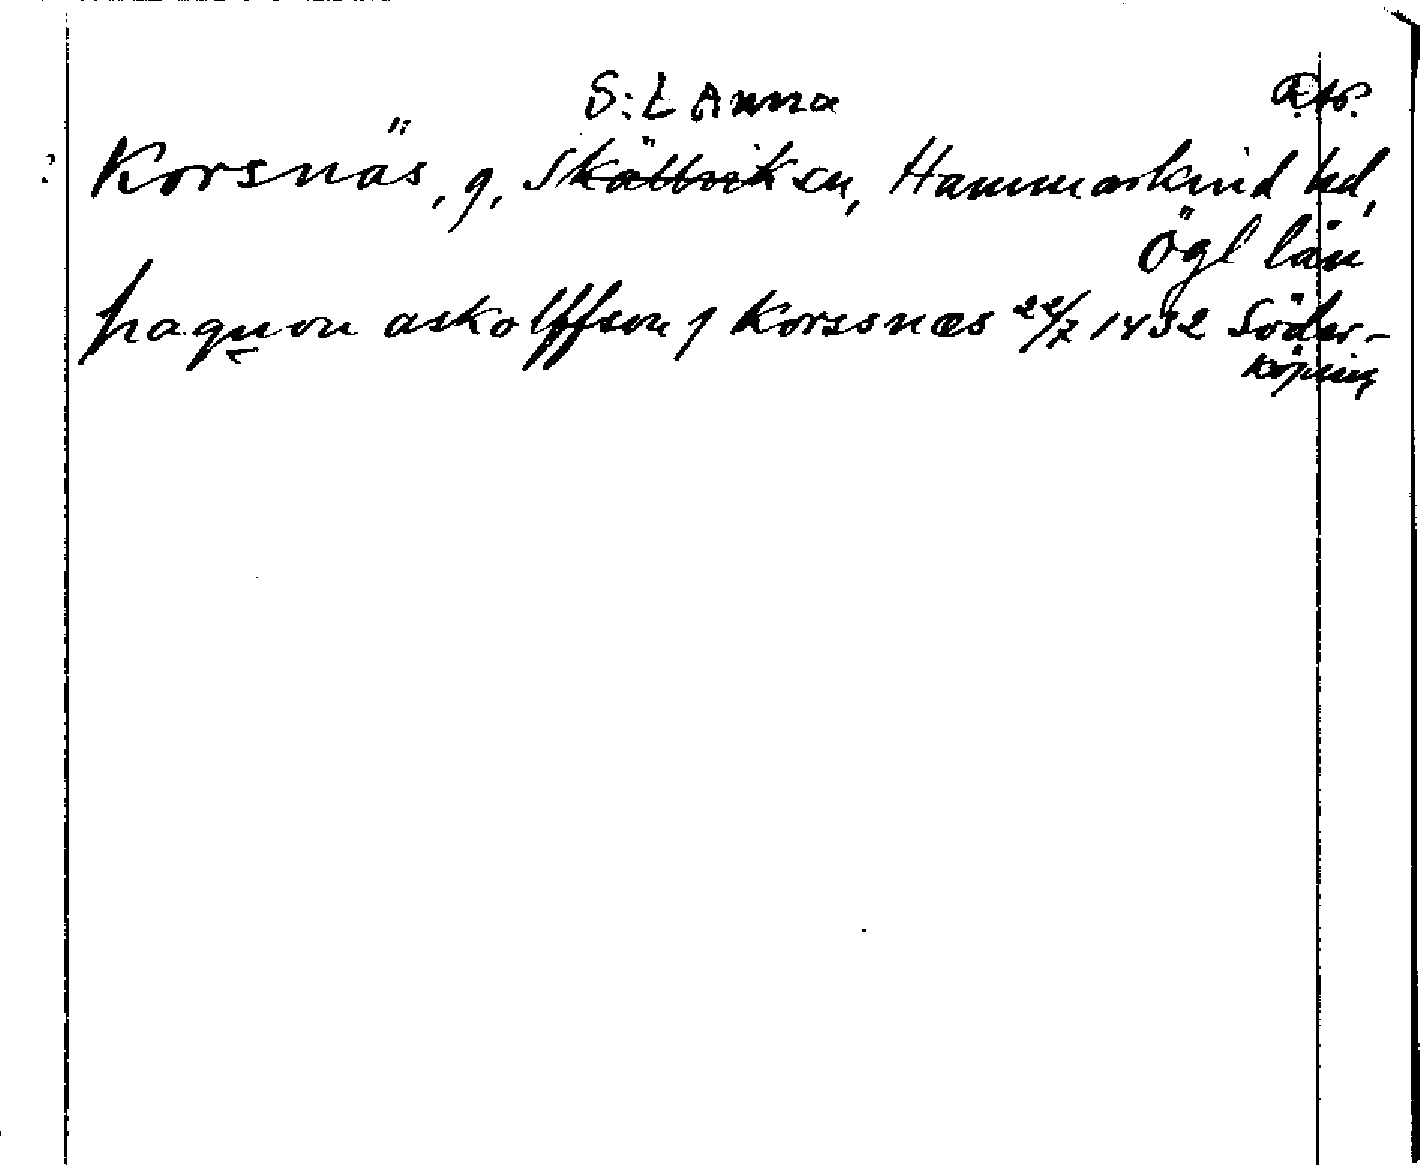 S:t Anna RAp.
? Korsnäs, g, Skällvik sn, Hammarkind hd,
Ögl län
haquon askolffson j Korssnæs 22/7 1432 Söder-
köping